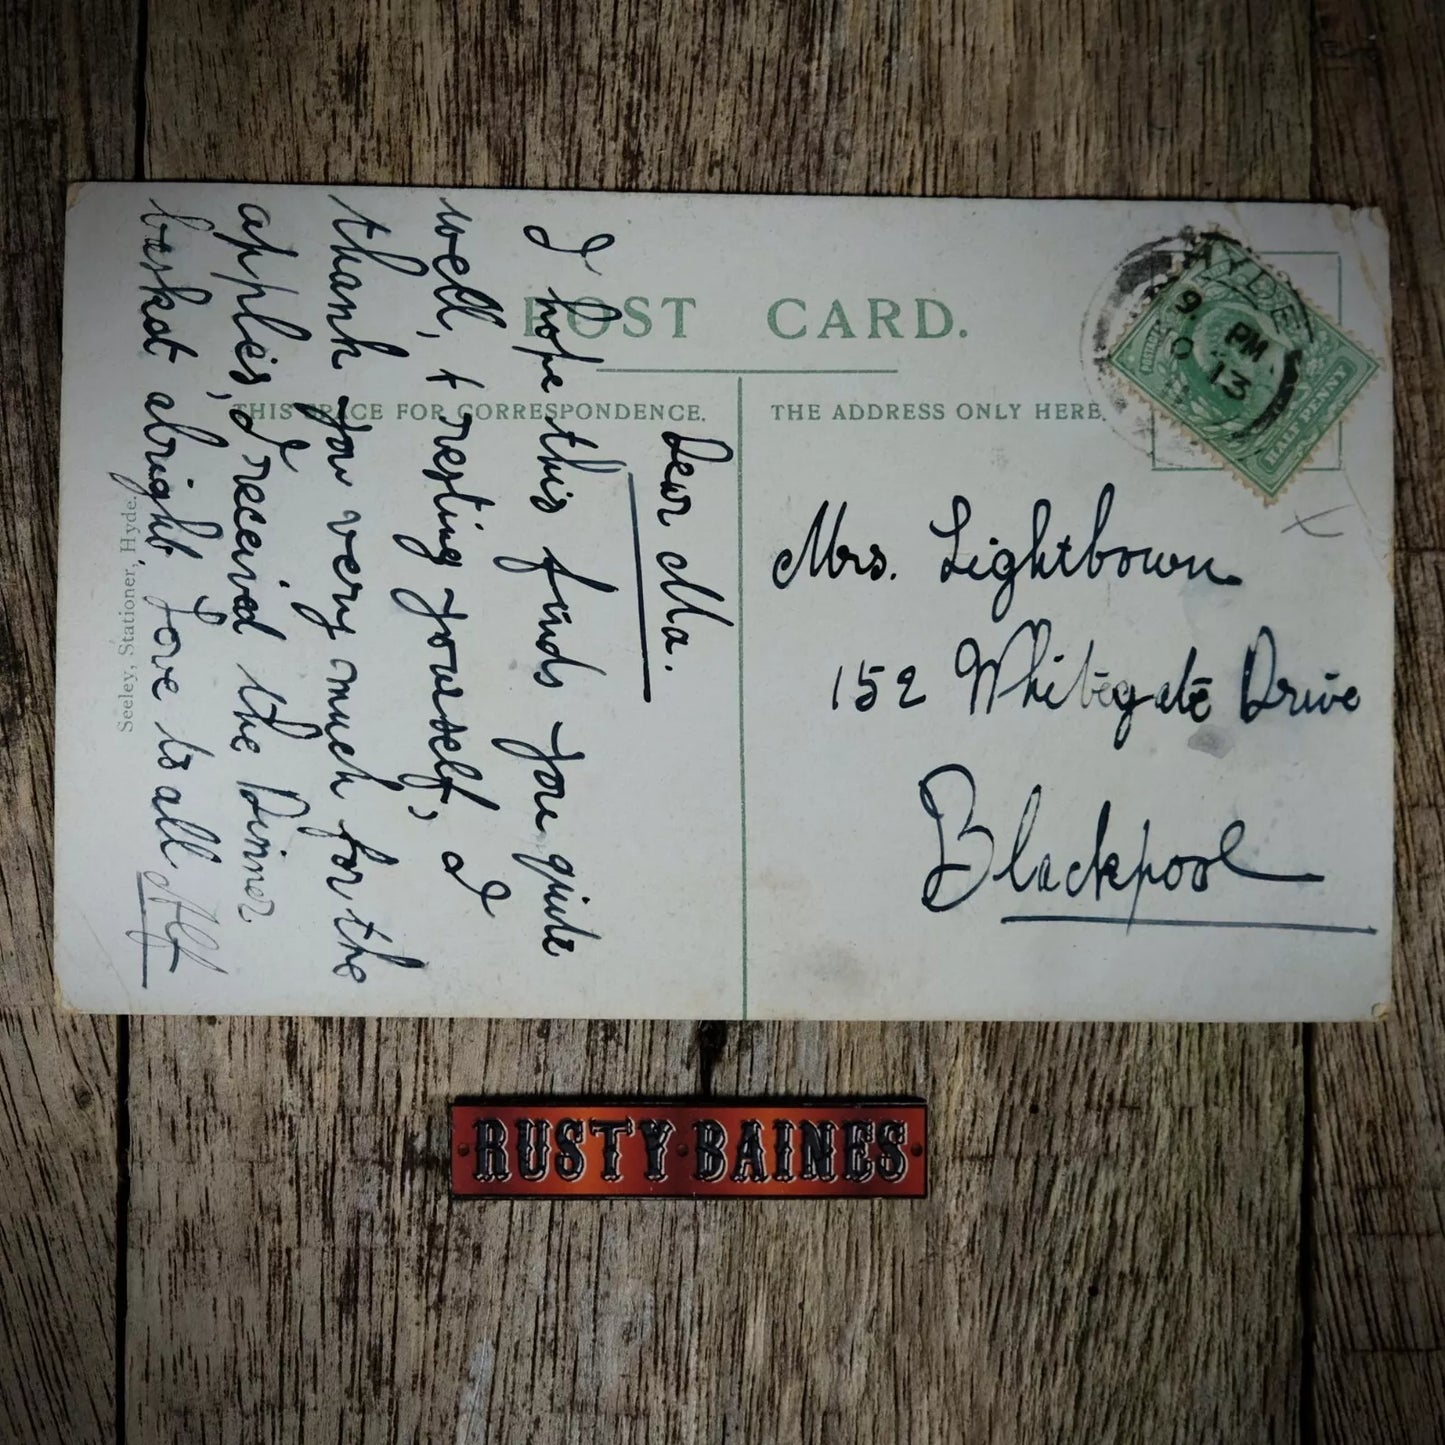 POST CARD.
THIS SPACE FOR CORRESPONDENCE.
THE ADDRESS ONLY HERE.
Dear Ma.
I hope this finds you quite
well, & resting yourself, I
thank you very much for the
apples, I received the Dinner
basket alright. Love to all Alf
Seeley, Stationer, Hyde.
HYDE
9 PM
O 13
POSTAGE
HALF PENNY
Mrs. Lightbown
152 Whitegate Drive
Blackpool
RUSTY BAINES